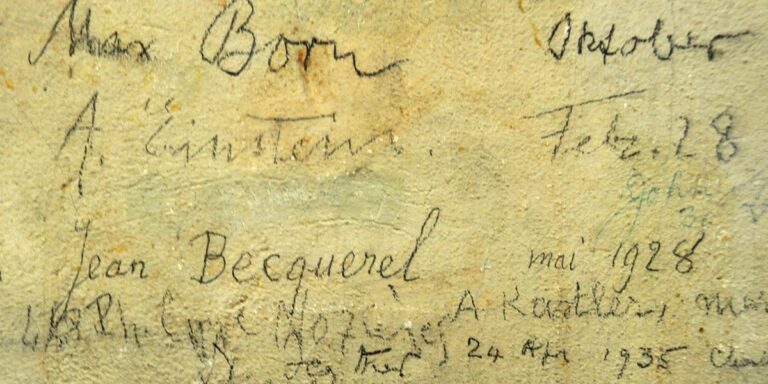 Max Born Oktober
A. Einstein. Feb. 28
John
Jean Becquerel mai 1928
A. Kastler,
24 Apr 1935